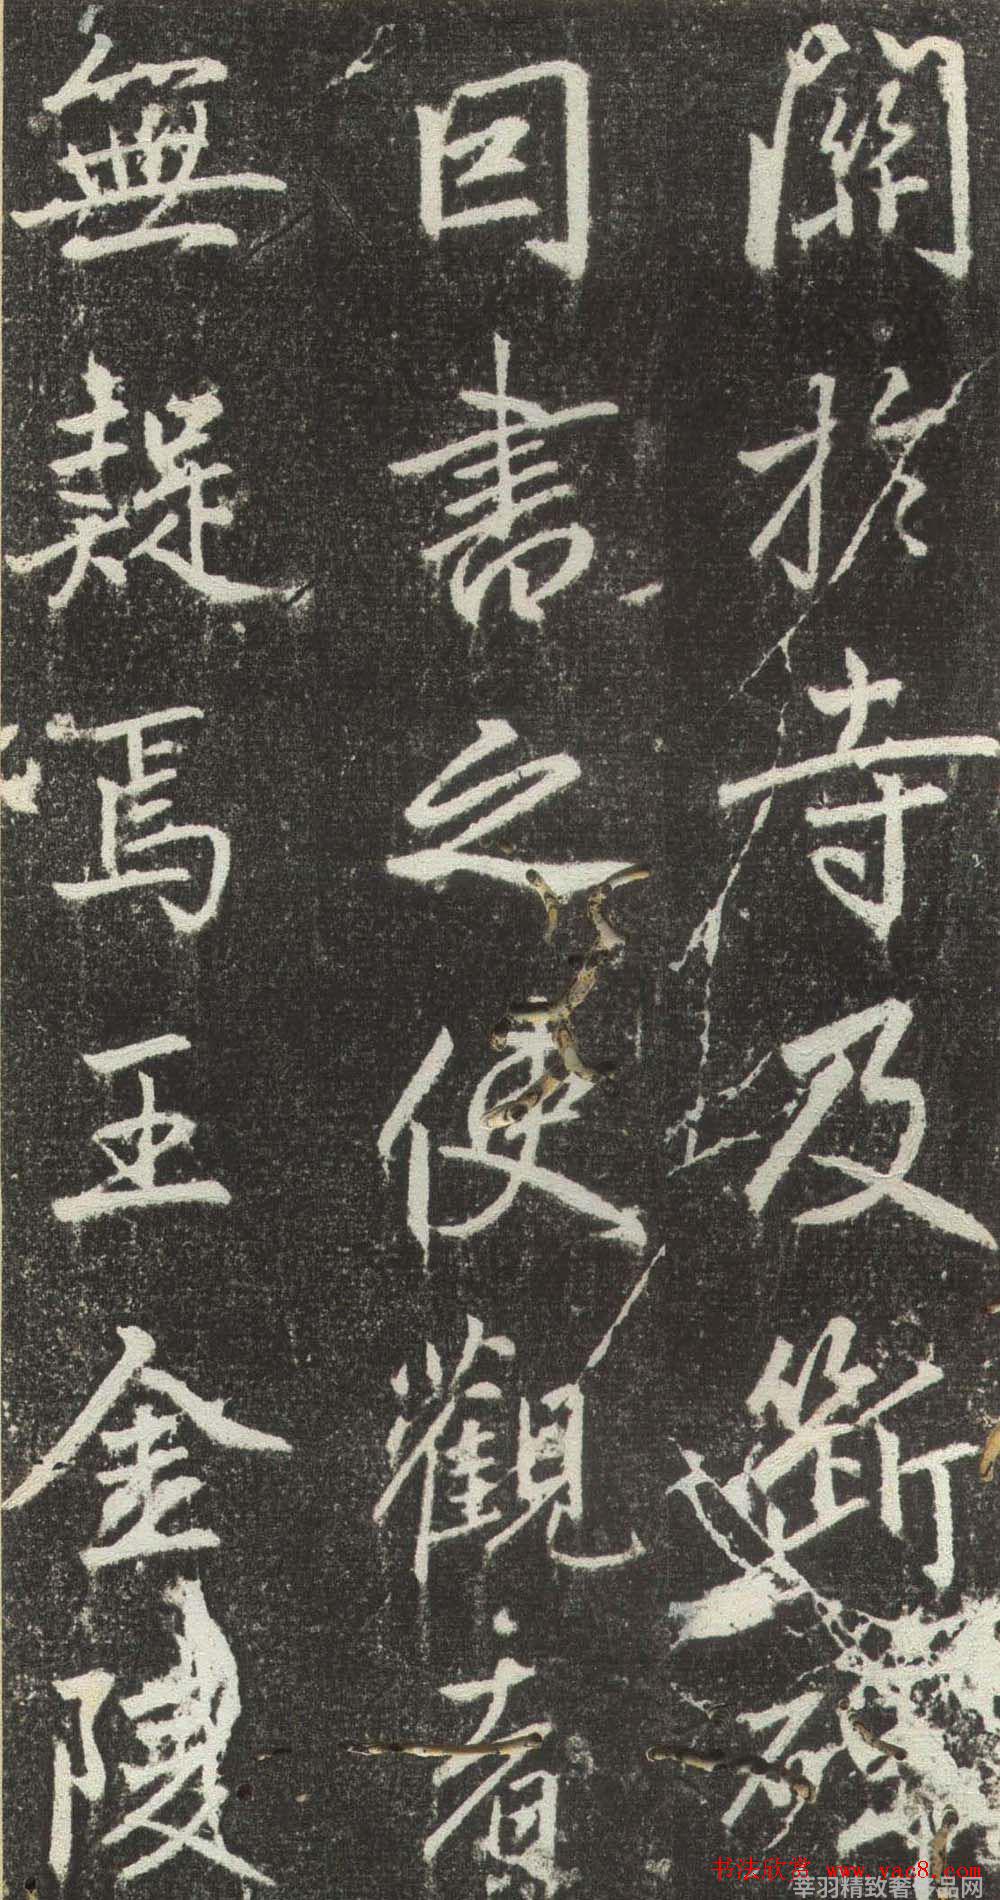 關扵寺及斷
囙書之使觀者
無疑焉王金陵
书法欣赏 www.yac8.com
莘羽精致奢侈品网